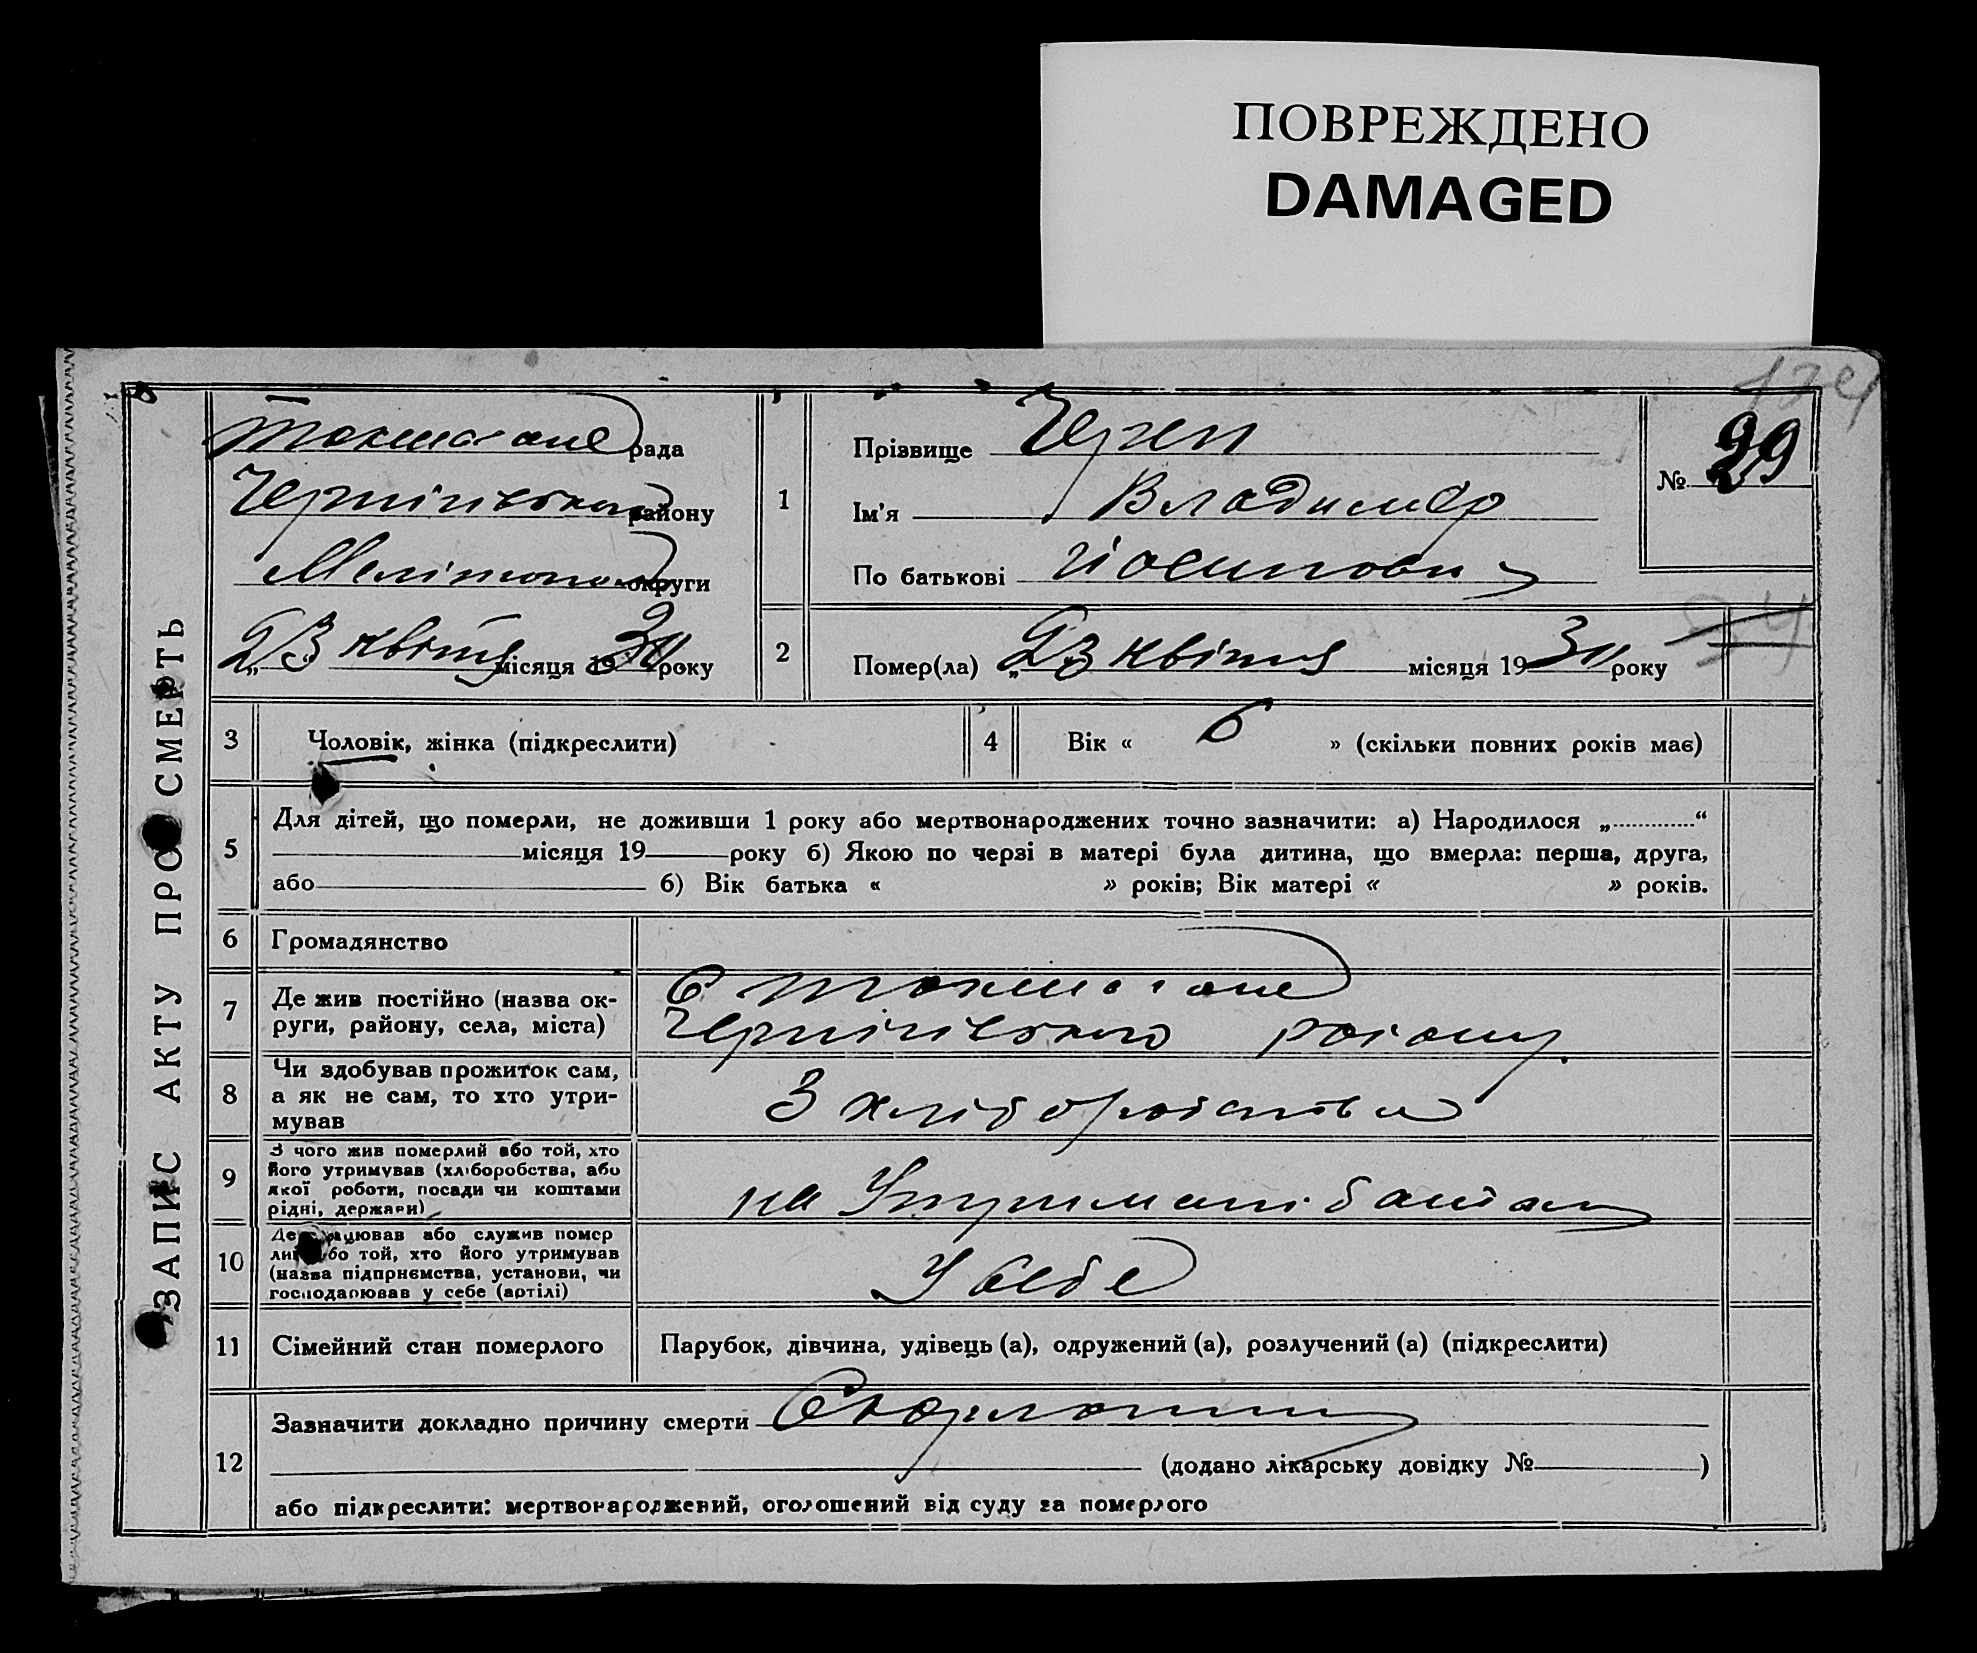 ПОВРЕЖДЕНО
DAMAGED
ЗАПИС АКТУ ПРО СМЕРТЬ
Токмачане рада
Чернігівського району
Мелітополь округи
„23 квітня місяця 1930 року
1
Прізвище
Ім'я Владимер
По батькові Йосипович
№ 29
2
Помер(ла) „23 квітня місяця 1930 року
3
Чоловік, жінка (підкреслити)
4
Вік « 6 » (скільки повних років має)
5
Для дітей, що померли, не доживши 1 року або мертвонароджених точно зазначити: а) Народилося „ “
місяця 19 року б) Якою по черзі в матері була дитина, що вмерла: перша, друга,
або б) Вік батька « » років; Вік матері « » років.
6
Громадянство
7
Де жив постійно (назва ок-
руги, району, села, міста)
С Токмачане
Чернігівського району
8
Чи здобував прожиток сам,
а як не сам, то хто утри-
мував
З хліборобства
9
З чого жив померлий або той, хто
його утримував (хліборобства, або
якої роботи, посади чи коштами
рідні, держави)
на Утримані батька
10
Де працював або служив помер
лий або той, хто його утримував
(назва підприємства, установи, чи
господарював у себе (артілі)
У себе
11
Сімейний стан померлого
Парубок, дівчина, удівець (а), одружений (а), розлучений (а) (підкреслити)
12
Зазначити докладно причину смерти Скорлотини
(додано лікарську довідку № )
або підкреслити: мертвонароджений, оголошений від суду за померлого